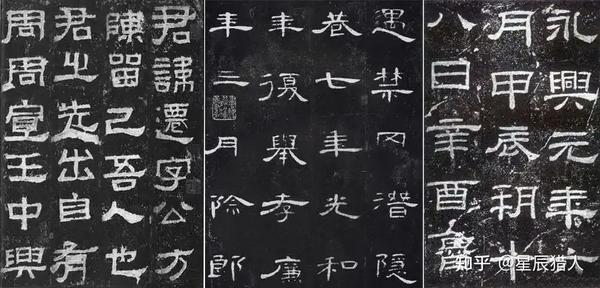 君諱遷字公方
陳留己吾人也
君之先出自有
周周宣王中興
遇禁网潛隱
巷七年光和
年復舉孝廉
年三月除郎
永興元年六
月甲辰朔十
八日辛酉魯
知乎 @星辰猎人